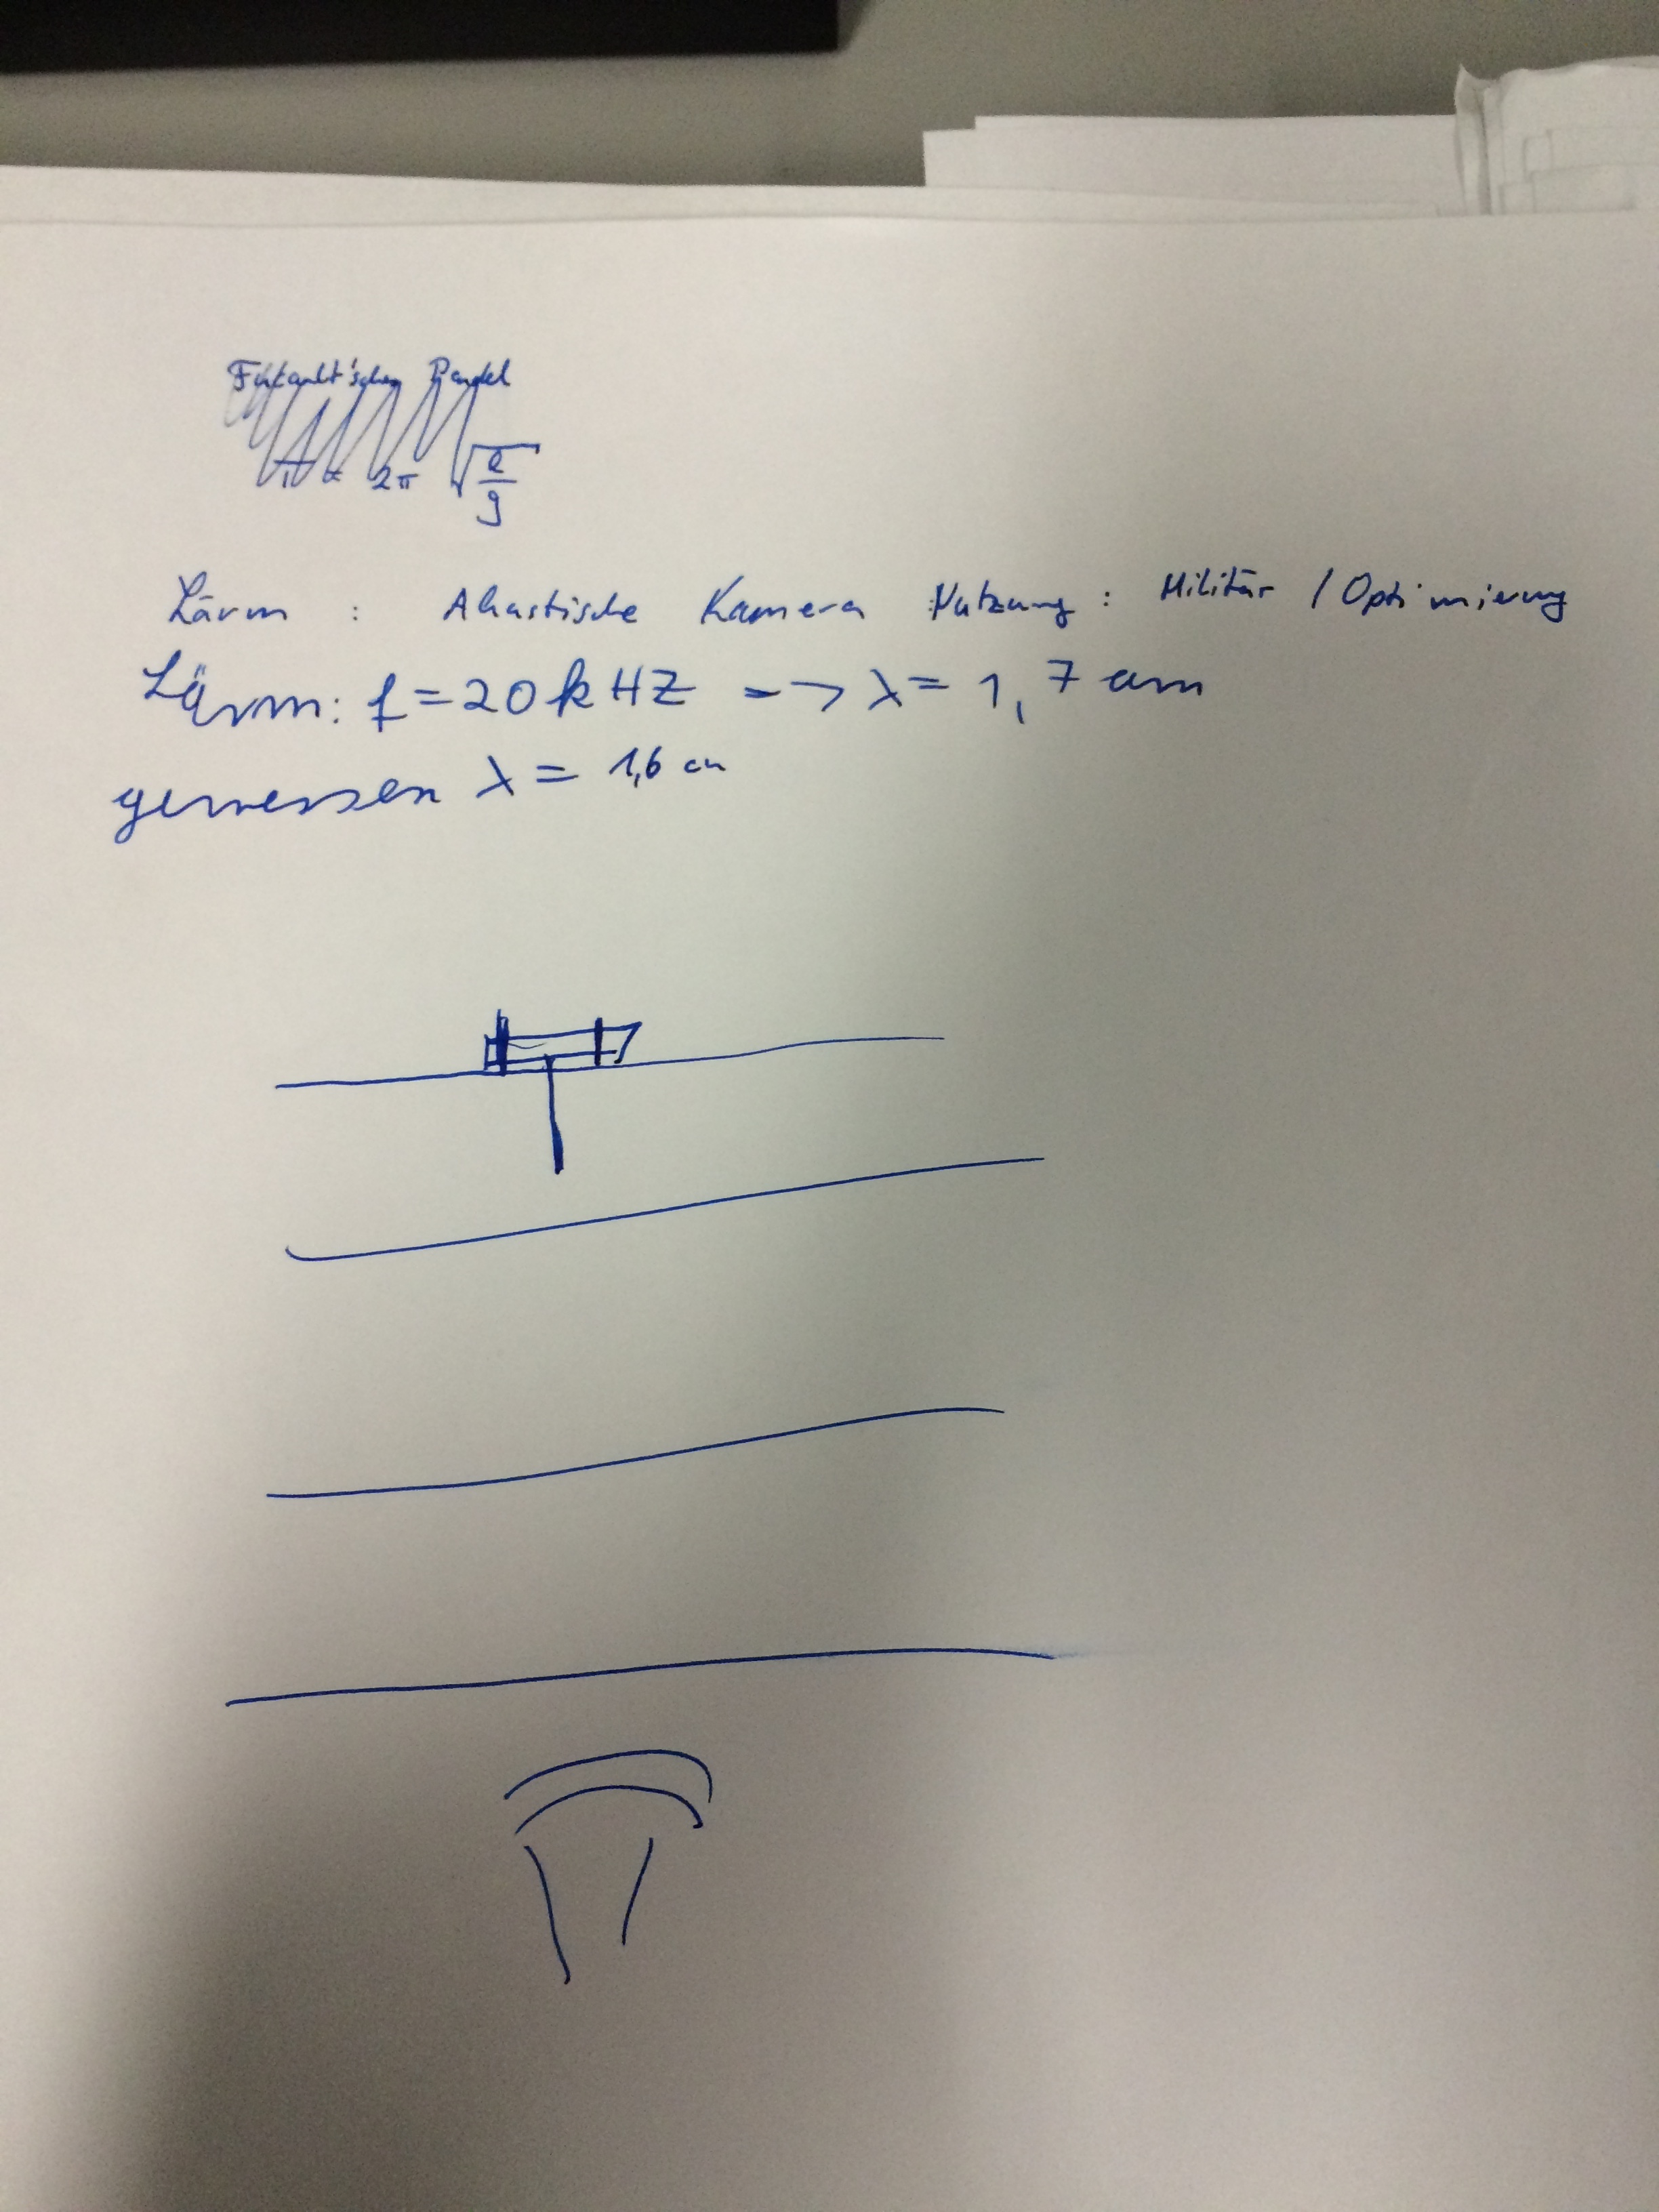 Pendel
T = 2π √(l/g)
Lärm : Akustische Kamera Nutzung : Militär / Optimierung
Lärm: f = 20 kHZ --> λ = 1,7 cm
gemessen λ = 1,6 cm